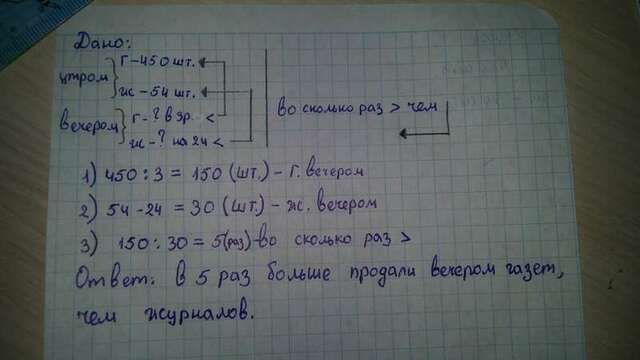 Дано:
утром } г - 450 шт.
ж - 54 шт.
вечером } г - ? в 3р. <
ж - ? на 24 <
во сколько раз > чем
1) 450 : 3 = 150 (шт.) - г. вечером
2) 54 - 24 = 30 (шт.) - ж. вечером
3) 150 : 30 = 5(раз) - во сколько раз >
Ответ: в 5 раз больше продали вечером газет,
чем журналов.